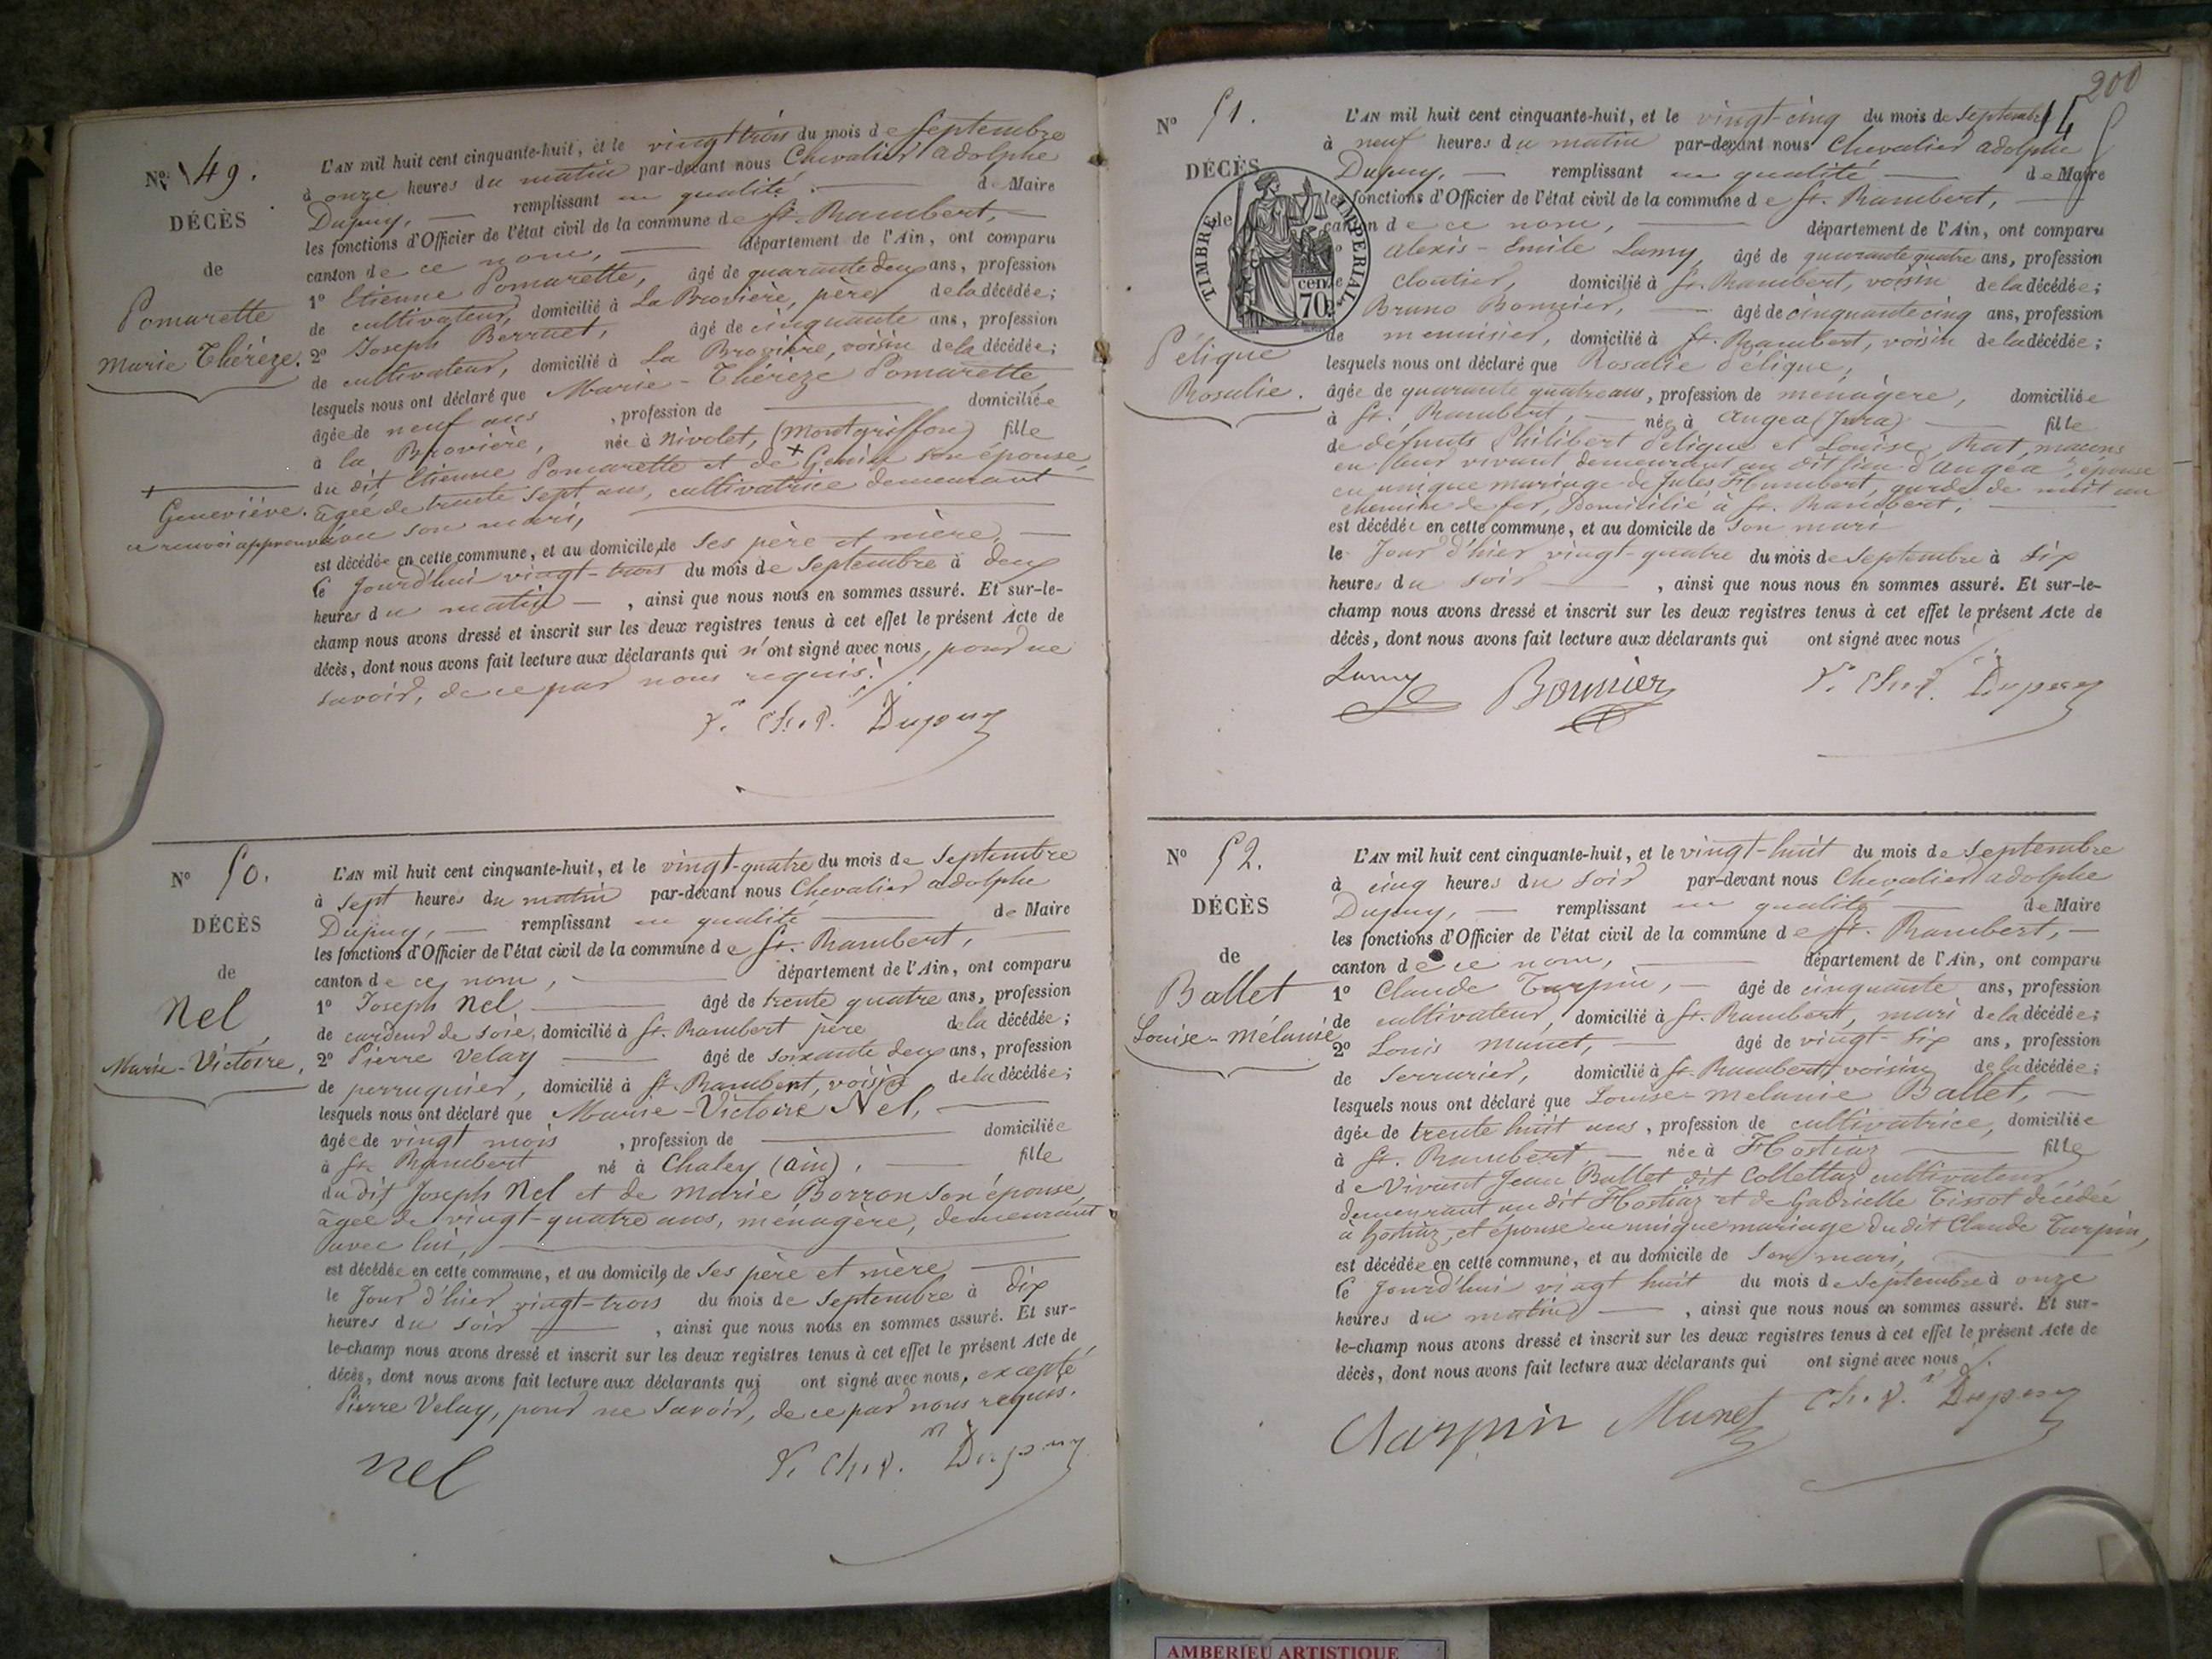 N° 49.
DÉCÈS
de
Pomarette
Marie Thérèze.
Geneviève.
L'AN mil huit cent cinquante-huit, et le vingt trois du mois de Septembre
à onze heures du matin par-devant nous Chevalier adolphe
Dupuy, remplissant en qualité de Maire
les fonctions d'Officier de l'état civil de la commune de St. Rambert,
canton de ce nom, département de l'Ain, ont comparu
1° Etienne Pomarette, âgé de quarante deux ans, profession
de cultivateur, domicilié à La Brovière, père de la décédée;
2° Joseph Berruet, âgé de cinquante ans, profession
de cultivateur, domicilié à La Brovière, voisin de la décédée;
lesquels nous ont déclaré que Marie-Thérèze Pomarette,
âgée de neuf ans, profession de domiciliée
à la Brovière, née à Nivolet, (Montgriffon) fille
du dit Etienne Pomarette et de + son épouse,
âgée de trente sept ans, cultivatrice demeurant
avec son mari,
est décédée en cette commune, et au domicile de ses père et mère,
Ce Jourd'hui vingt-trois du mois de Septembre à deux
heures du matin, ainsi que nous nous en sommes assuré. Et sur-le-
champ nous avons dressé et inscrit sur les deux registres tenus à cet effet le présent Acte de
décès, dont nous avons fait lecture aux déclarants qui n'ont signé avec nous, pour ne
savoir, de ce par nous requis.
Dupuy
N° 50.
DÉCÈS
de
Nel
Marie-Victoire,
L'AN mil huit cent cinquante-huit, et le vingt-quatre du mois de Septembre
à Sept heures du matin par-devant nous Chevalier adolphe
Dupuy, remplissant en qualité de Maire
les fonctions d'Officier de l'état civil de la commune de St. Rambert,
canton de ce nom, département de l'Ain, ont comparu
1° Joseph Nel âgé de trente quatre ans, profession
de cardeur de soie, domicilié à St. Rambert père de la décédée;
2° Pierre Velay âgé de soixante deux ans, profession
de perruquier, domicilié à St. Rambert, voisin de la décédée;
lesquels nous ont déclaré que Marie-Victoire Nel,
âgée de vingt mois, profession de domiciliée
à St. Rambert né à Chaley (ain), fille
du dit Joseph Nel et de Marie Borron son épouse,
âgée de vingt-quatre ans, ménagère, demeurant
avec lui,
est décédée en cette commune, et au domicile de ses père et mère
le Jour d'hier vingt-trois du mois de Septembre à dix
heures du soir, ainsi que nous nous en sommes assuré. Et sur-
le-champ nous avons dressé et inscrit sur les deux registres tenus à cet effet le présent Acte de
décès, dont nous avons fait lecture aux déclarants qui ont signé avec nous, excepté
Pierre Velay, pour ne savoir, de ce par nous requis.
Nel Dupuy
200
N° 51.
DÉCÈS
de
TIMBRE IMPERIAL
70 cent
Pélique
Rosalie.
L'AN mil huit cent cinquante-huit, et le vingt-cinq du mois de Septembre
à neuf heures du matin par-devant nous Chevalier adolphe
Dupuy, remplissant en qualité de Maire
les fonctions d'Officier de l'état civil de la commune de St. Rambert,
canton de ce nom, département de l'Ain, ont comparu
alexis-Emile Lamy, âgé de quarante quatre ans, profession
cloutier, domicilié à St. Rambert, voisin de la décédée;
Bruno Bonnier, âgé de cinquante cinq ans, profession
de menuisier, domicilié à St. Rambert, voisin de la décédée;
lesquels nous ont déclaré que Rosalie Pélique,
âgée de quarante quatre ans, profession de ménagère, domiciliée
à St. Rambert, née à augea (Jura) fille
de défunts Philibert Pélique et Louise Rat, maçons
en leur vivant demeurant au dit lieu d'augea, épouse
en unique mariage de Jules Humbert, garde de nuit au
chemin de fer, domicilié à St. Rambert,
est décédée en cette commune, et au domicile de son mari
le Jour d'hier vingt-quatre du mois de Septembre à six
heures du soir, ainsi que nous nous en sommes assuré. Et sur-le-
champ nous avons dressé et inscrit sur les deux registres tenus à cet effet le présent Acte de
décès, dont nous avons fait lecture aux déclarants qui ont signé avec nous
Lamy Bonnier Dupuy
N° 52.
DÉCÈS
de
Ballet
Louise-Mélanie
L'AN mil huit cent cinquante-huit, et le vingt-huit du mois de Septembre
à cinq heures du soir par-devant nous Chevalier adolphe
Dupuy, remplissant en qualité de Maire
les fonctions d'Officier de l'état civil de la commune de St. Rambert,
canton de ce nom, département de l'Ain, ont comparu
1° Claude Turpin, âgé de cinquante ans, profession
de cultivateur, domicilié à St. Rambert, mari de la décédée;
2° Louis Munet, âgé de vingt-six ans, profession
de Serrurier, domicilié à St. Rambert, voisin de la décédée;
lesquels nous ont déclaré que Louise-Melanie Ballet,
âgée de trente huit ans, profession de cultivatrice, domiciliée
à St. Rambert née à Hostiaz fille
de Vivant Jean Ballet dit Collettaz cultivateur,
demeurant au dit Hostiaz et de Gabrielle Tissot décédée
à hostiaz, et épouse en unique mariage du dit Claude Turpin,
est décédée en cette commune, et au domicile de son mari,
Ce Jourd'hui vingt huit du mois de Septembre à onze
heures du matin, ainsi que nous nous en sommes assuré. Et sur-
le-champ nous avons dressé et inscrit sur les deux registres tenus à cet effet le présent Acte de
décès, dont nous avons fait lecture aux déclarants qui ont signé avec nous
Munet Dupuy
AMBERIEU ARTISTIQUE